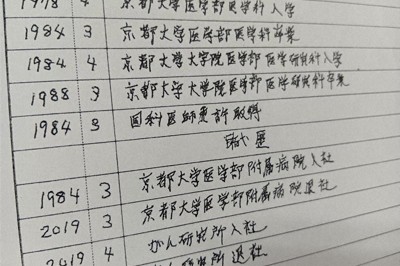 4 京都大学医学部医学科入学
1984 3 京都大学医学部医学科卒業
1984 4 京都大学大学院医学部医学研究科入学
1988 3 京都大学大学院医学部医学研究科卒業
1984 3 国科医師免許取得
職歴
1984 3 京都大学医学部附属病院入社
2019 3 京都大学医学部附属病院退社
2019 4 がん研究所入社
研究所退社